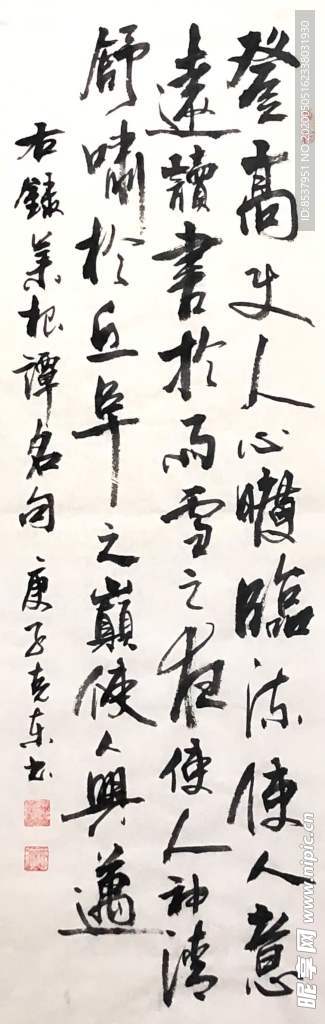 登高使人心曠臨流使人意
遠讀書於雨雪之夜使人神清
舒嘯於丘阜之巔使人興邁
右録菜根譚名句
庚子克東书
ID:8537951 NO:20200505162338031930
昵享网 www.nipic.cn